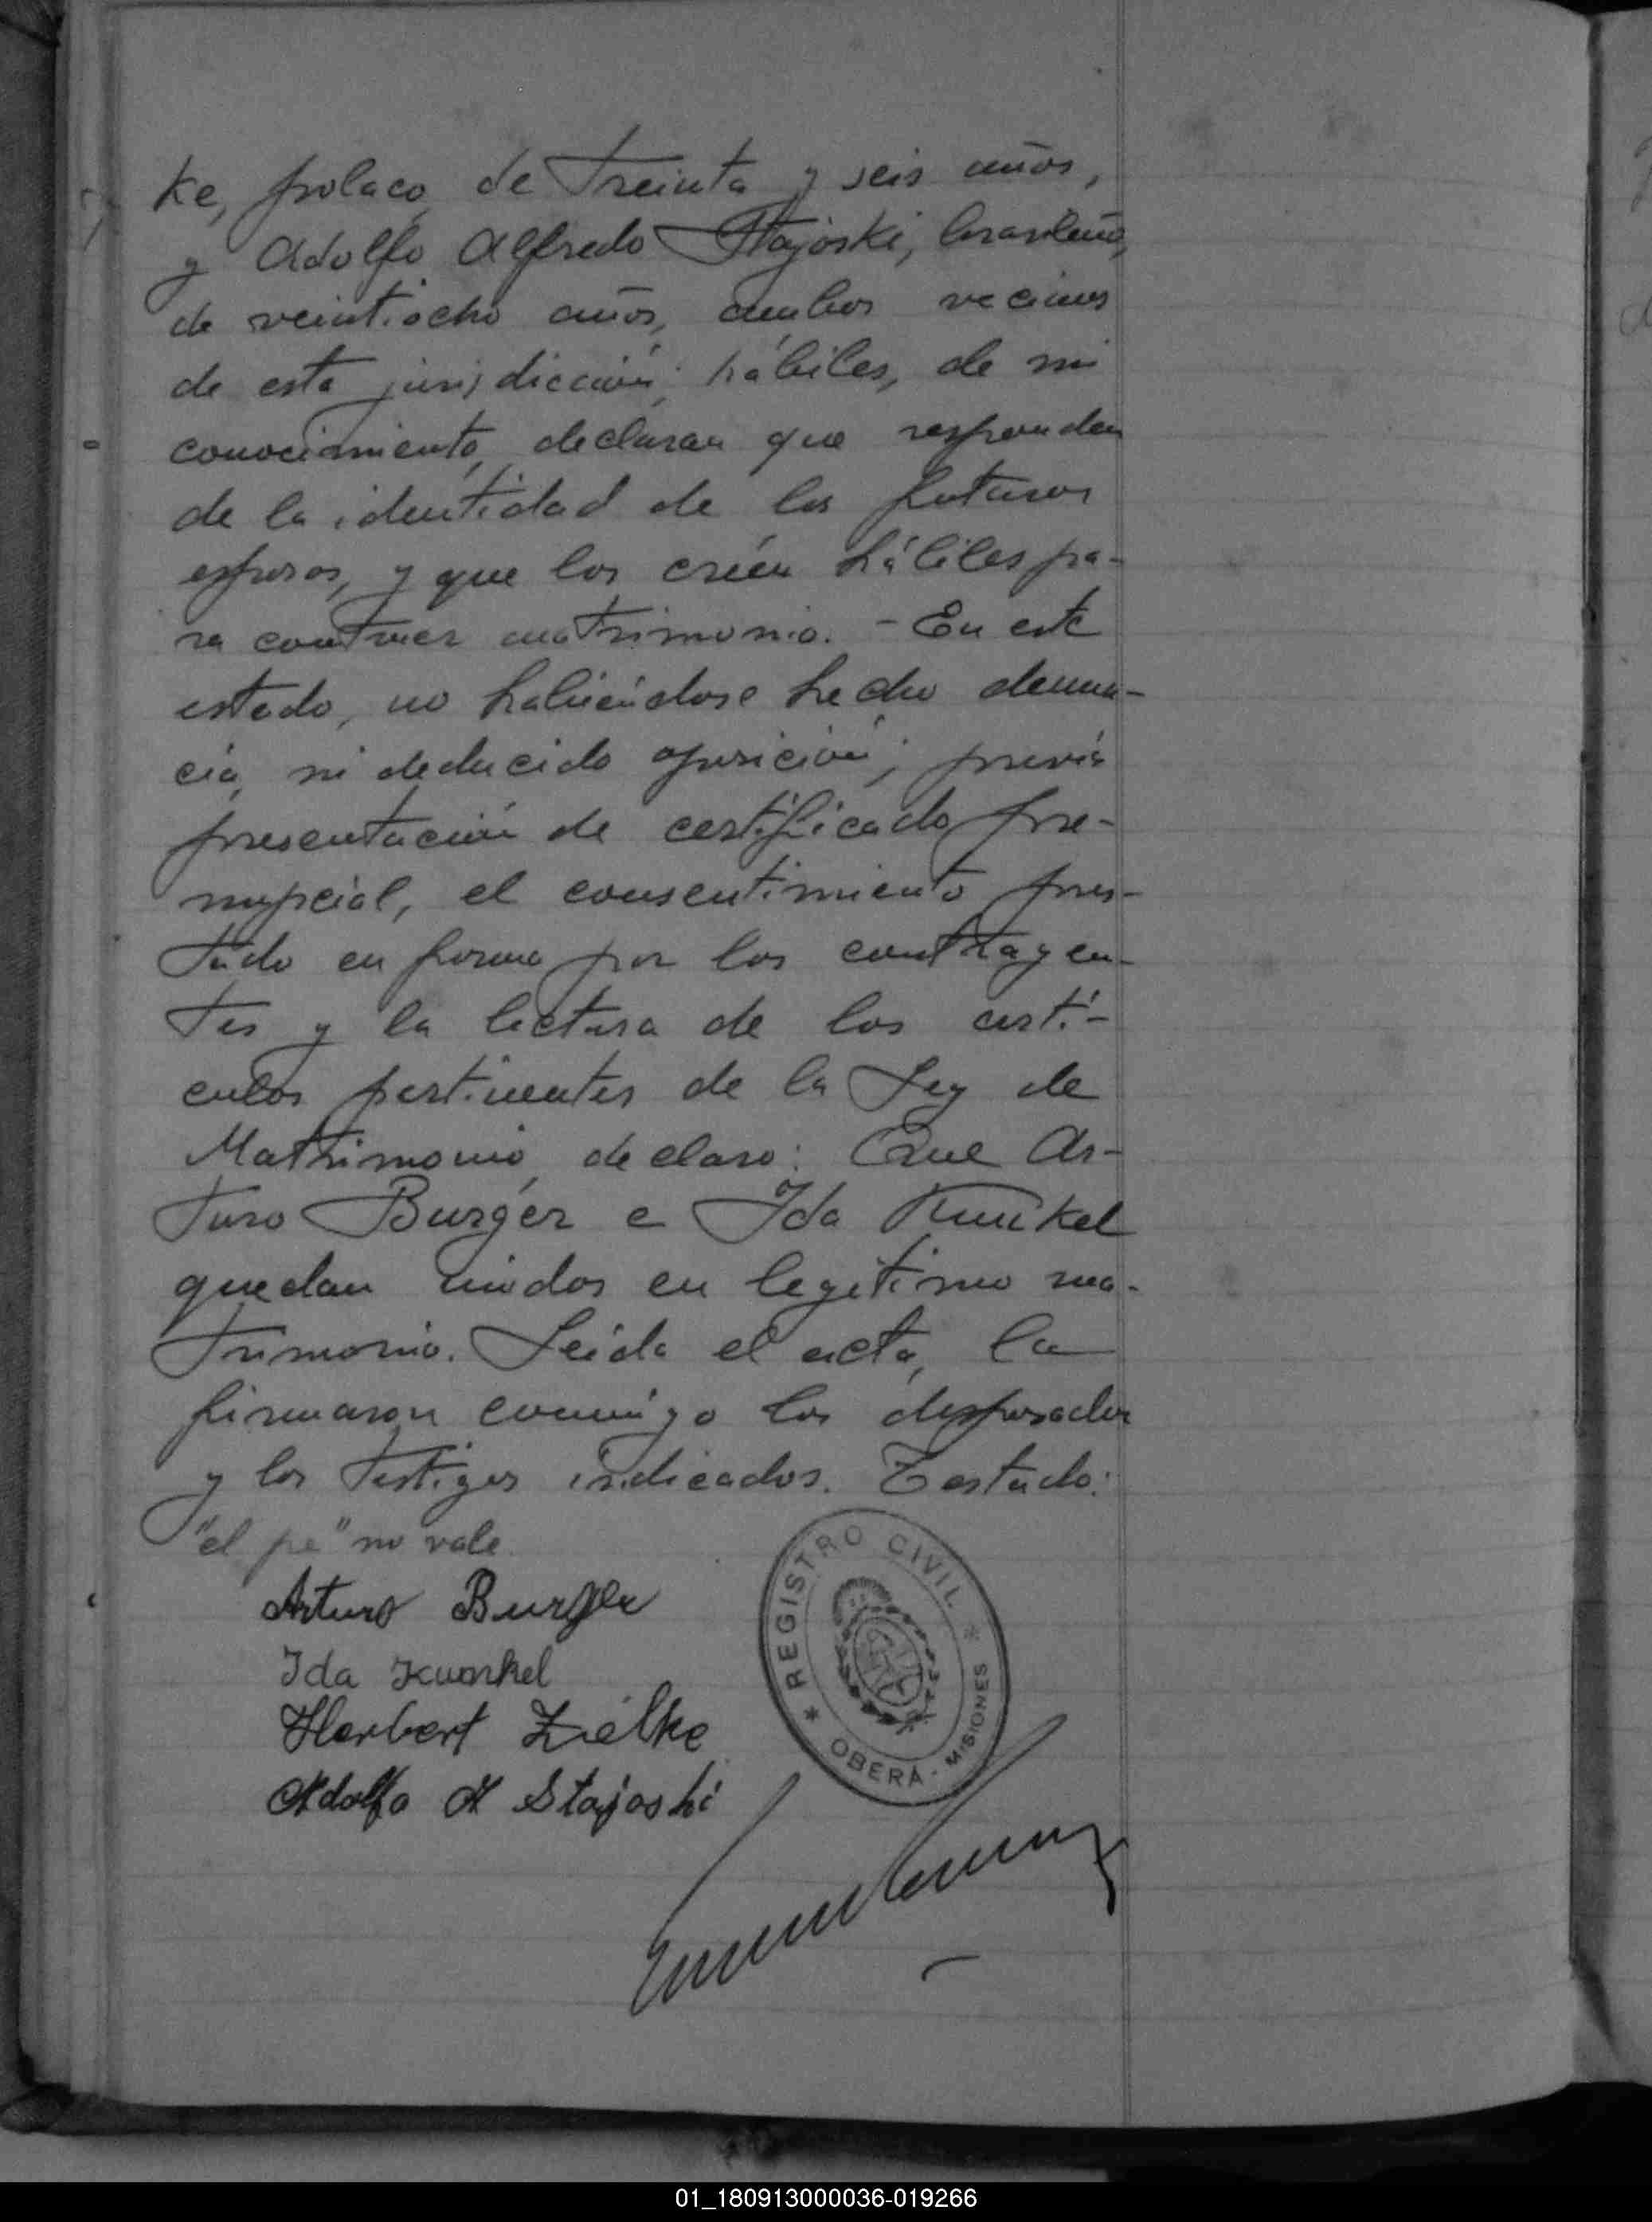 ke, polaco de treinta y seis años,
y Adolfo Alfredo Stajoski, brasileño,
de veintiocho años, ambos vecinos
de esta jurisdicción, hábiles, de mi
conocimiento, declaran que responden
de la identidad de los futuros
esposos, y que los creén hábiles pa-
ra contraer matrimonio. - En este
estado, no habiéndose hecho denun-
cia, ni deducido oposición; previa
presentación de certificado pre-
nupcial, el consentimiento pres-
tado en forma por los contrayen-
tes y la lectura de los artí-
culos pertinentes de la Ley de
Matrimonio, declaro: Que Ar-
turo Burger e Ida Kunkel
quedan unidos en legítimo ma-
trimonio. Leída el acta, la
firmaron conmigo los desposados
y los testigos indicados. Testado:
"el pe" no vale.
Arturo Burger
Ida Kunkel
Herbert Zielke
Adolfo A Stajoski
* REGISTRO CIVIL *
OBERÁ - MISIONES
01_180913000036-019266